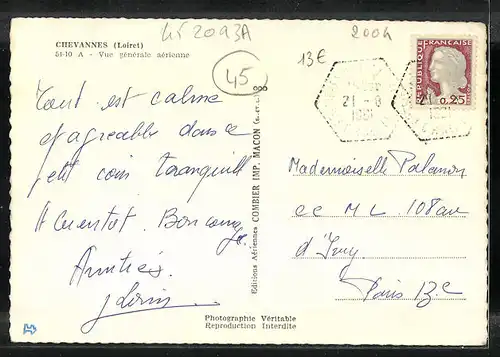 LF 2093A
2004
CHEVANNES (Loiret)
51-10 A - Vue générale aérienne
13€
45
RÉPUBLIQUE FRANÇAISE
0,25
21 - 8
1961
Tout est calme
et agréable dans ce
petit coin tranquille
A bientôt. Bon courage.
Amitiés.
Mademoiselle Palanon
108 av
d'Ivry
Paris 13e
Editions Aériennes COMBIER IMP. MACON
Photographie Véritable
Reproduction Interdite